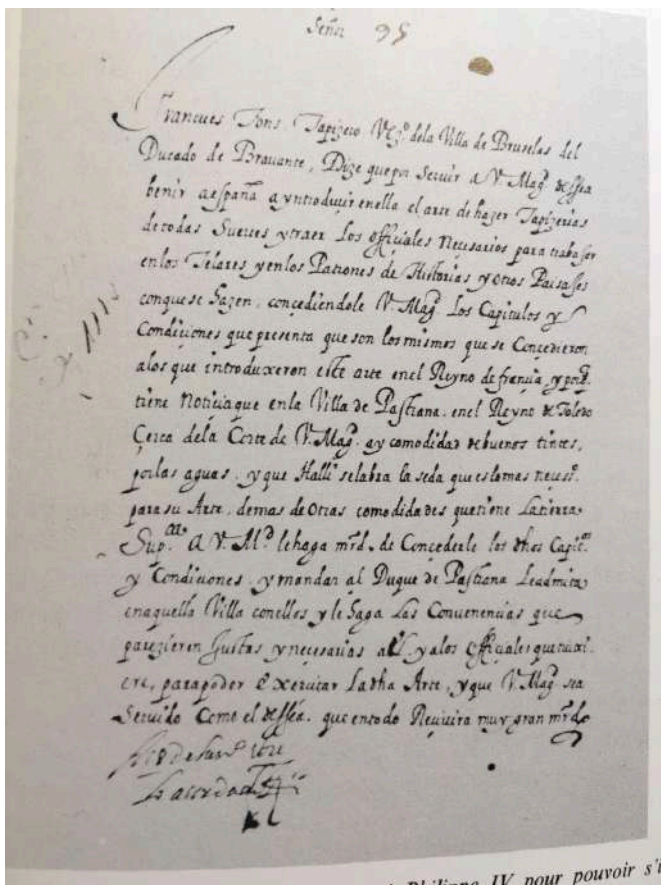 Señor 95
Françues Tons, Tapizero Vezº. dela Villa de Bruselas del
Ducado de Bravante, Dize que por Servir a V. Magd. dessea
benir a españa a yntroduzir enella el arte de hazer Tapizerias
de todas Suertes y traer Los officiales Necesarios para trabajar
en los Telares y en los Patrones de Historias y otros Paisajes
conque se hazen, concediendole V. Magd. Los Capitulos y
Condiciones que presenta que son los mismos que se Concedieron
alos que introduxeron este arte en el Reyno de françia, y porq.
tiene Noticia que en la Villa de Pastrana, en el Reyno de Toledo
Çerca dela Corte de V. Magd. ay comodidad de buenos tintes,
por las aguas, y que Halli se labra la seda que es lo mas neçessº.
para su Arte, demas de Otras comodidades que tiene La tierra.
Suppca. A V. Md. le haga mrd. de Concederle los dhos Capitos.
y Condiciones, y mandar al Duque de Pastrana Le admita
en aquella Villa con ellos y le haga Las Conveniencias que
parezieren Justas y necesarias a el y alos officiales que tuxi.
ere, para poder Exercitar La dha Arte, y que V. Magd. sea
Servido Como el dessea, que en todo Recivira muy gran mrd.
Philippe IV pour pouvoir s'i